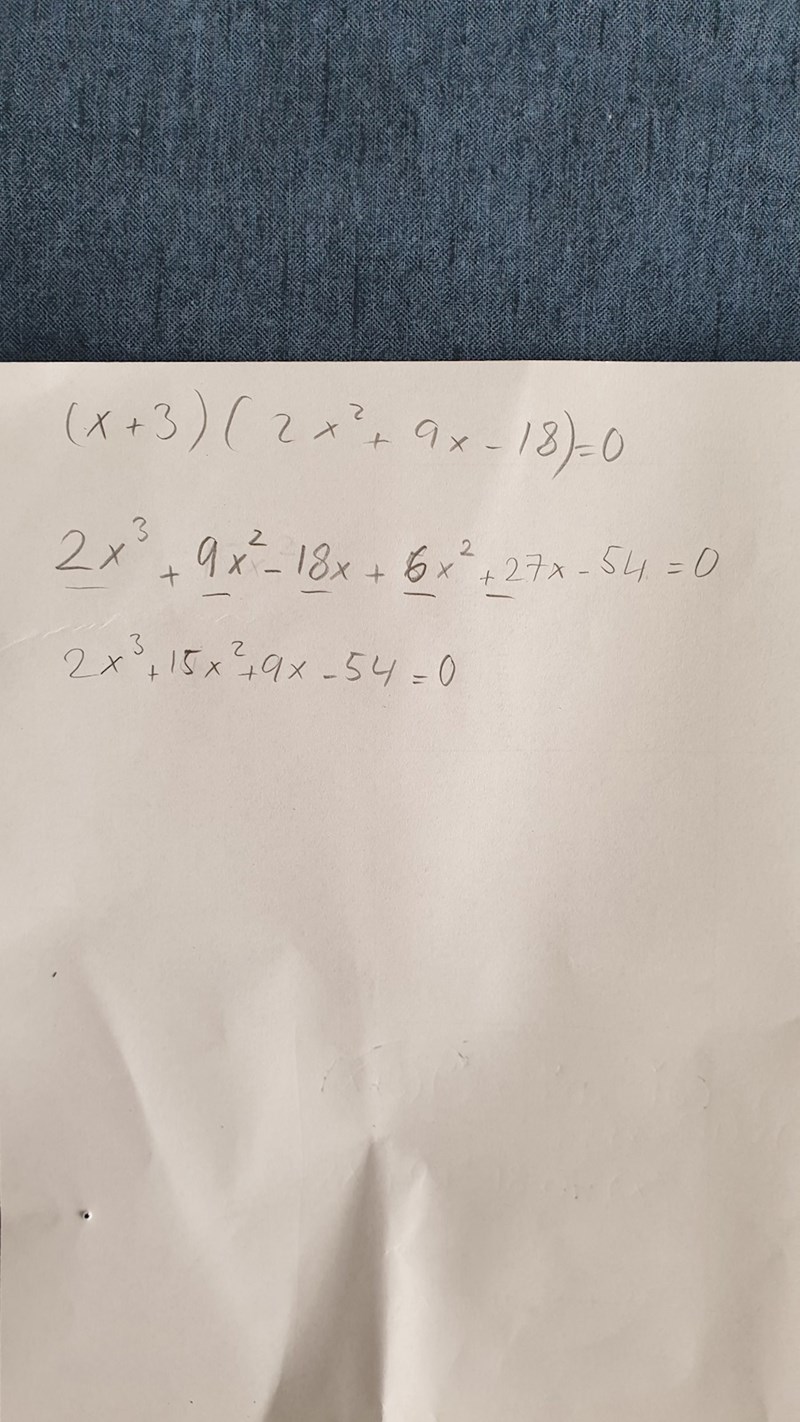 (x+3)(2x²+9x-18)=0
2x³+9x²-18x+6x²+27x-54=0
2x³+15x²+9x-54=0